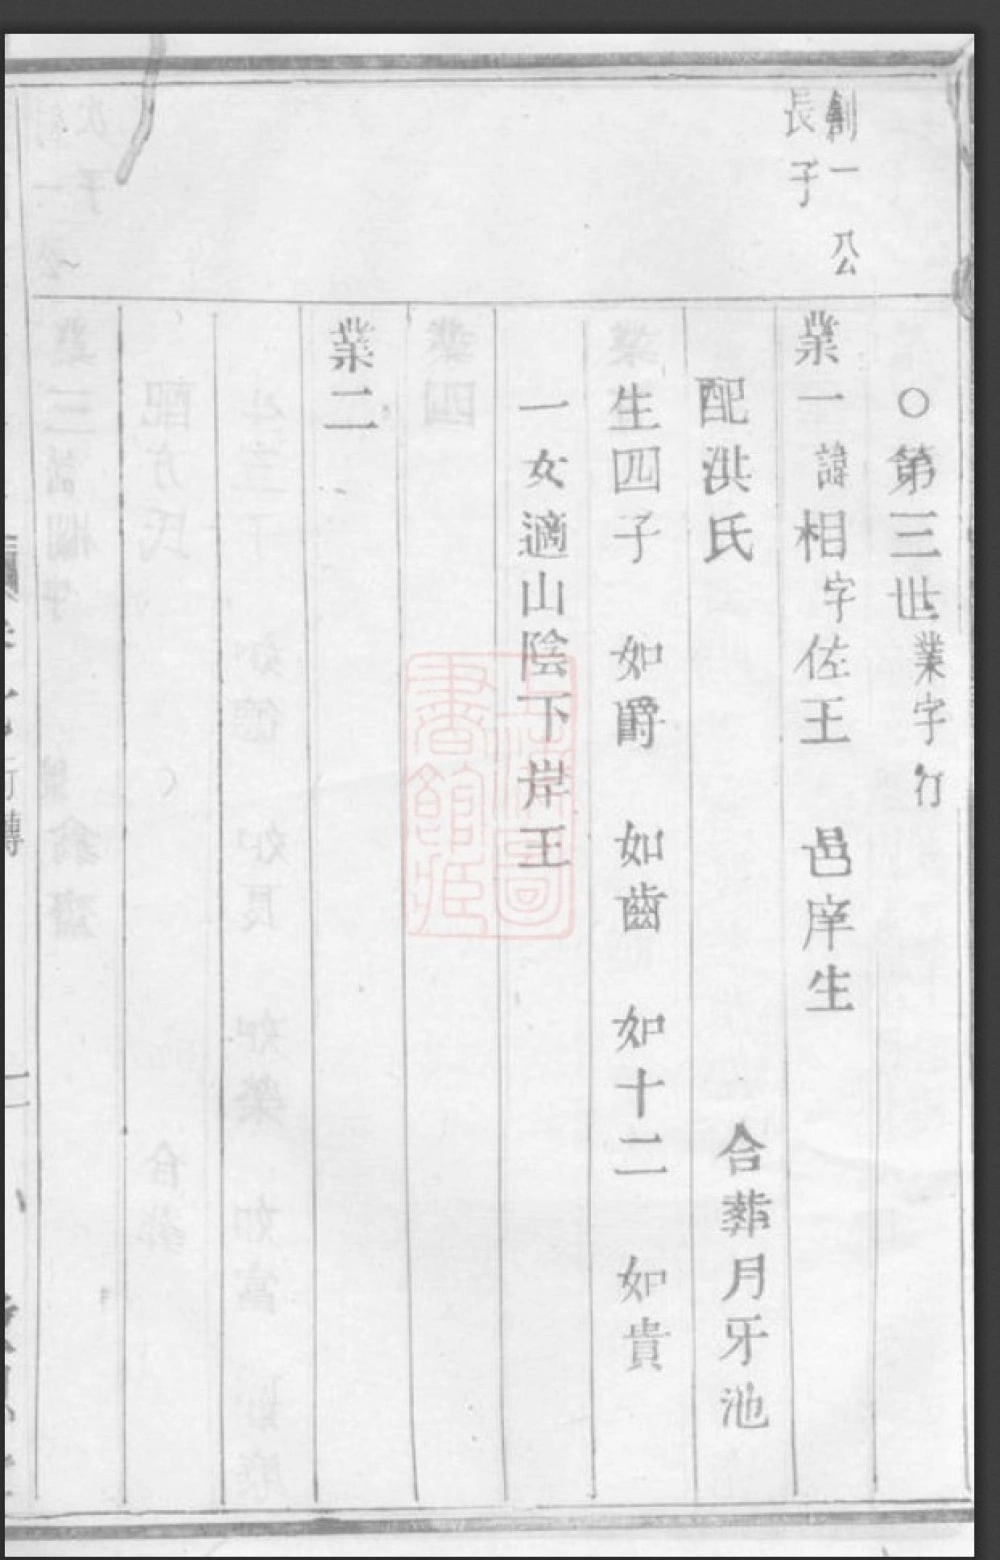 ○第三世業字行
創一公
長子
業一諱相字佐王 邑庠生
配洪氏 合葬月牙池
生四子 如爵 如齒 如十二 如貴
一女適山陰下岸王
業二
上海圖
書館藏